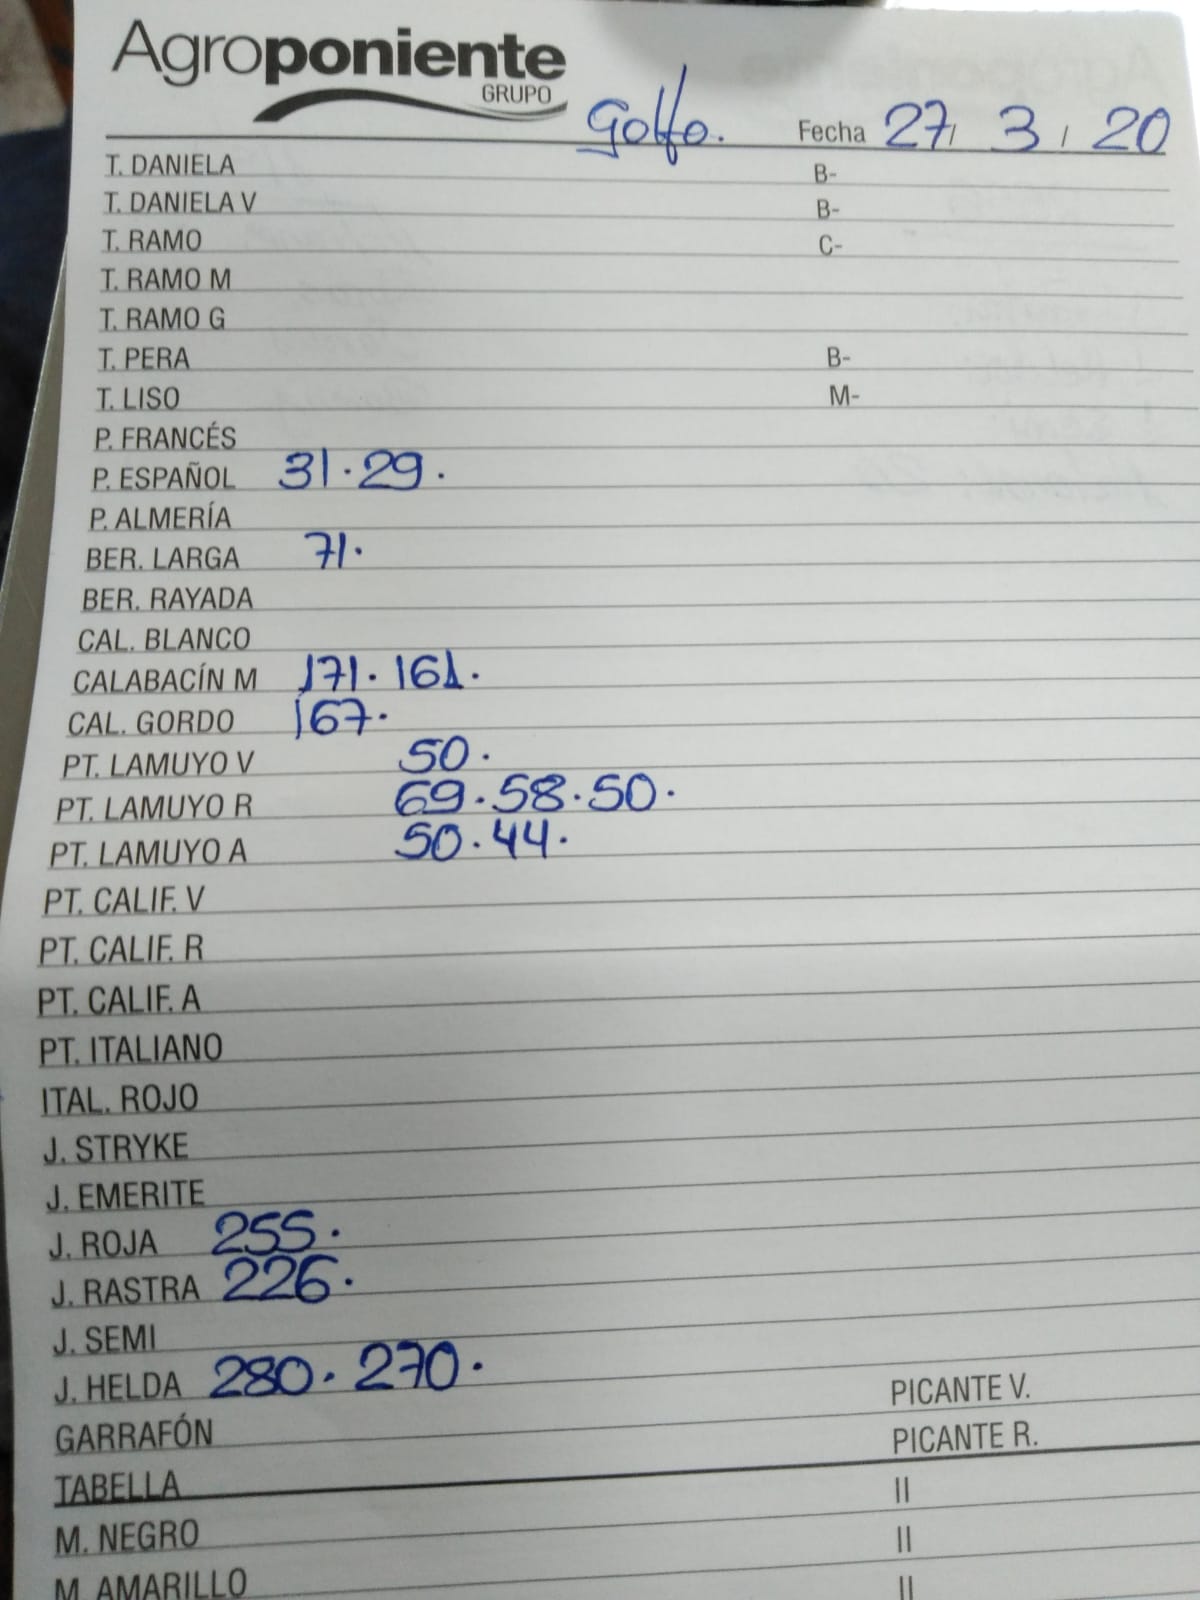 Agroponiente
GRUPO
Golfo. Fecha 27/ 3 / 20
T. DANIELA B-
T. DANIELA V B-
T. RAMO C-
T. RAMO M
T. RAMO G
T. PERA B-
T. LISO M-
P. FRANCÉS
P. ESPAÑOL 31.29.
P. ALMERÍA
BER. LARGA 71.
BER. RAYADA
CAL. BLANCO
CALABACÍN M 171. 161.
CAL. GORDO 167.
PT. LAMUYO V 50.
PT. LAMUYO R 69.58.50.
PT. LAMUYO A 50.44.
PT. CALIF. V
PT. CALIF. R
PT. CALIF. A
PT. ITALIANO
ITAL. ROJO
J. STRYKE
J. EMERITE
J. ROJA 255.
J. RASTRA 226.
J. SEMI
J. HELDA 280. 270.
GARRAFÓN PICANTE V.
TABELLA PICANTE R.
M. NEGRO II
M. AMARILLO II
II